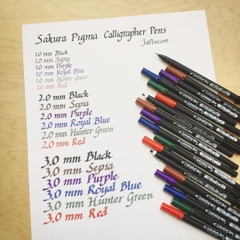 Sakura Pigma Calligrapher Pens
JetPens.com
1.0 mm Black
1.0 mm Sepia
1.0 mm Purple
1.0 mm Royal Blue
1.0 mm Hunter Green
1.0 mm Red
2.0 mm Black
2.0 mm Sepia
2.0 mm Purple
2.0 mm Royal Blue
2.0 mm Hunter Green
2.0 mm Red
3.0 mm Black
3.0 mm Sepia
3.0 mm Purple
3.0 mm Royal Blue
3.0 mm Hunter Green
3.0 mm Red